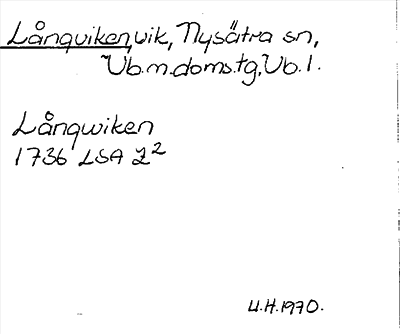 Långviken, vik, Nysätra sn,
Vb.m.doms.tg, Vb.l.
Långwiken
1736 LSA Z²
U.H.1970.